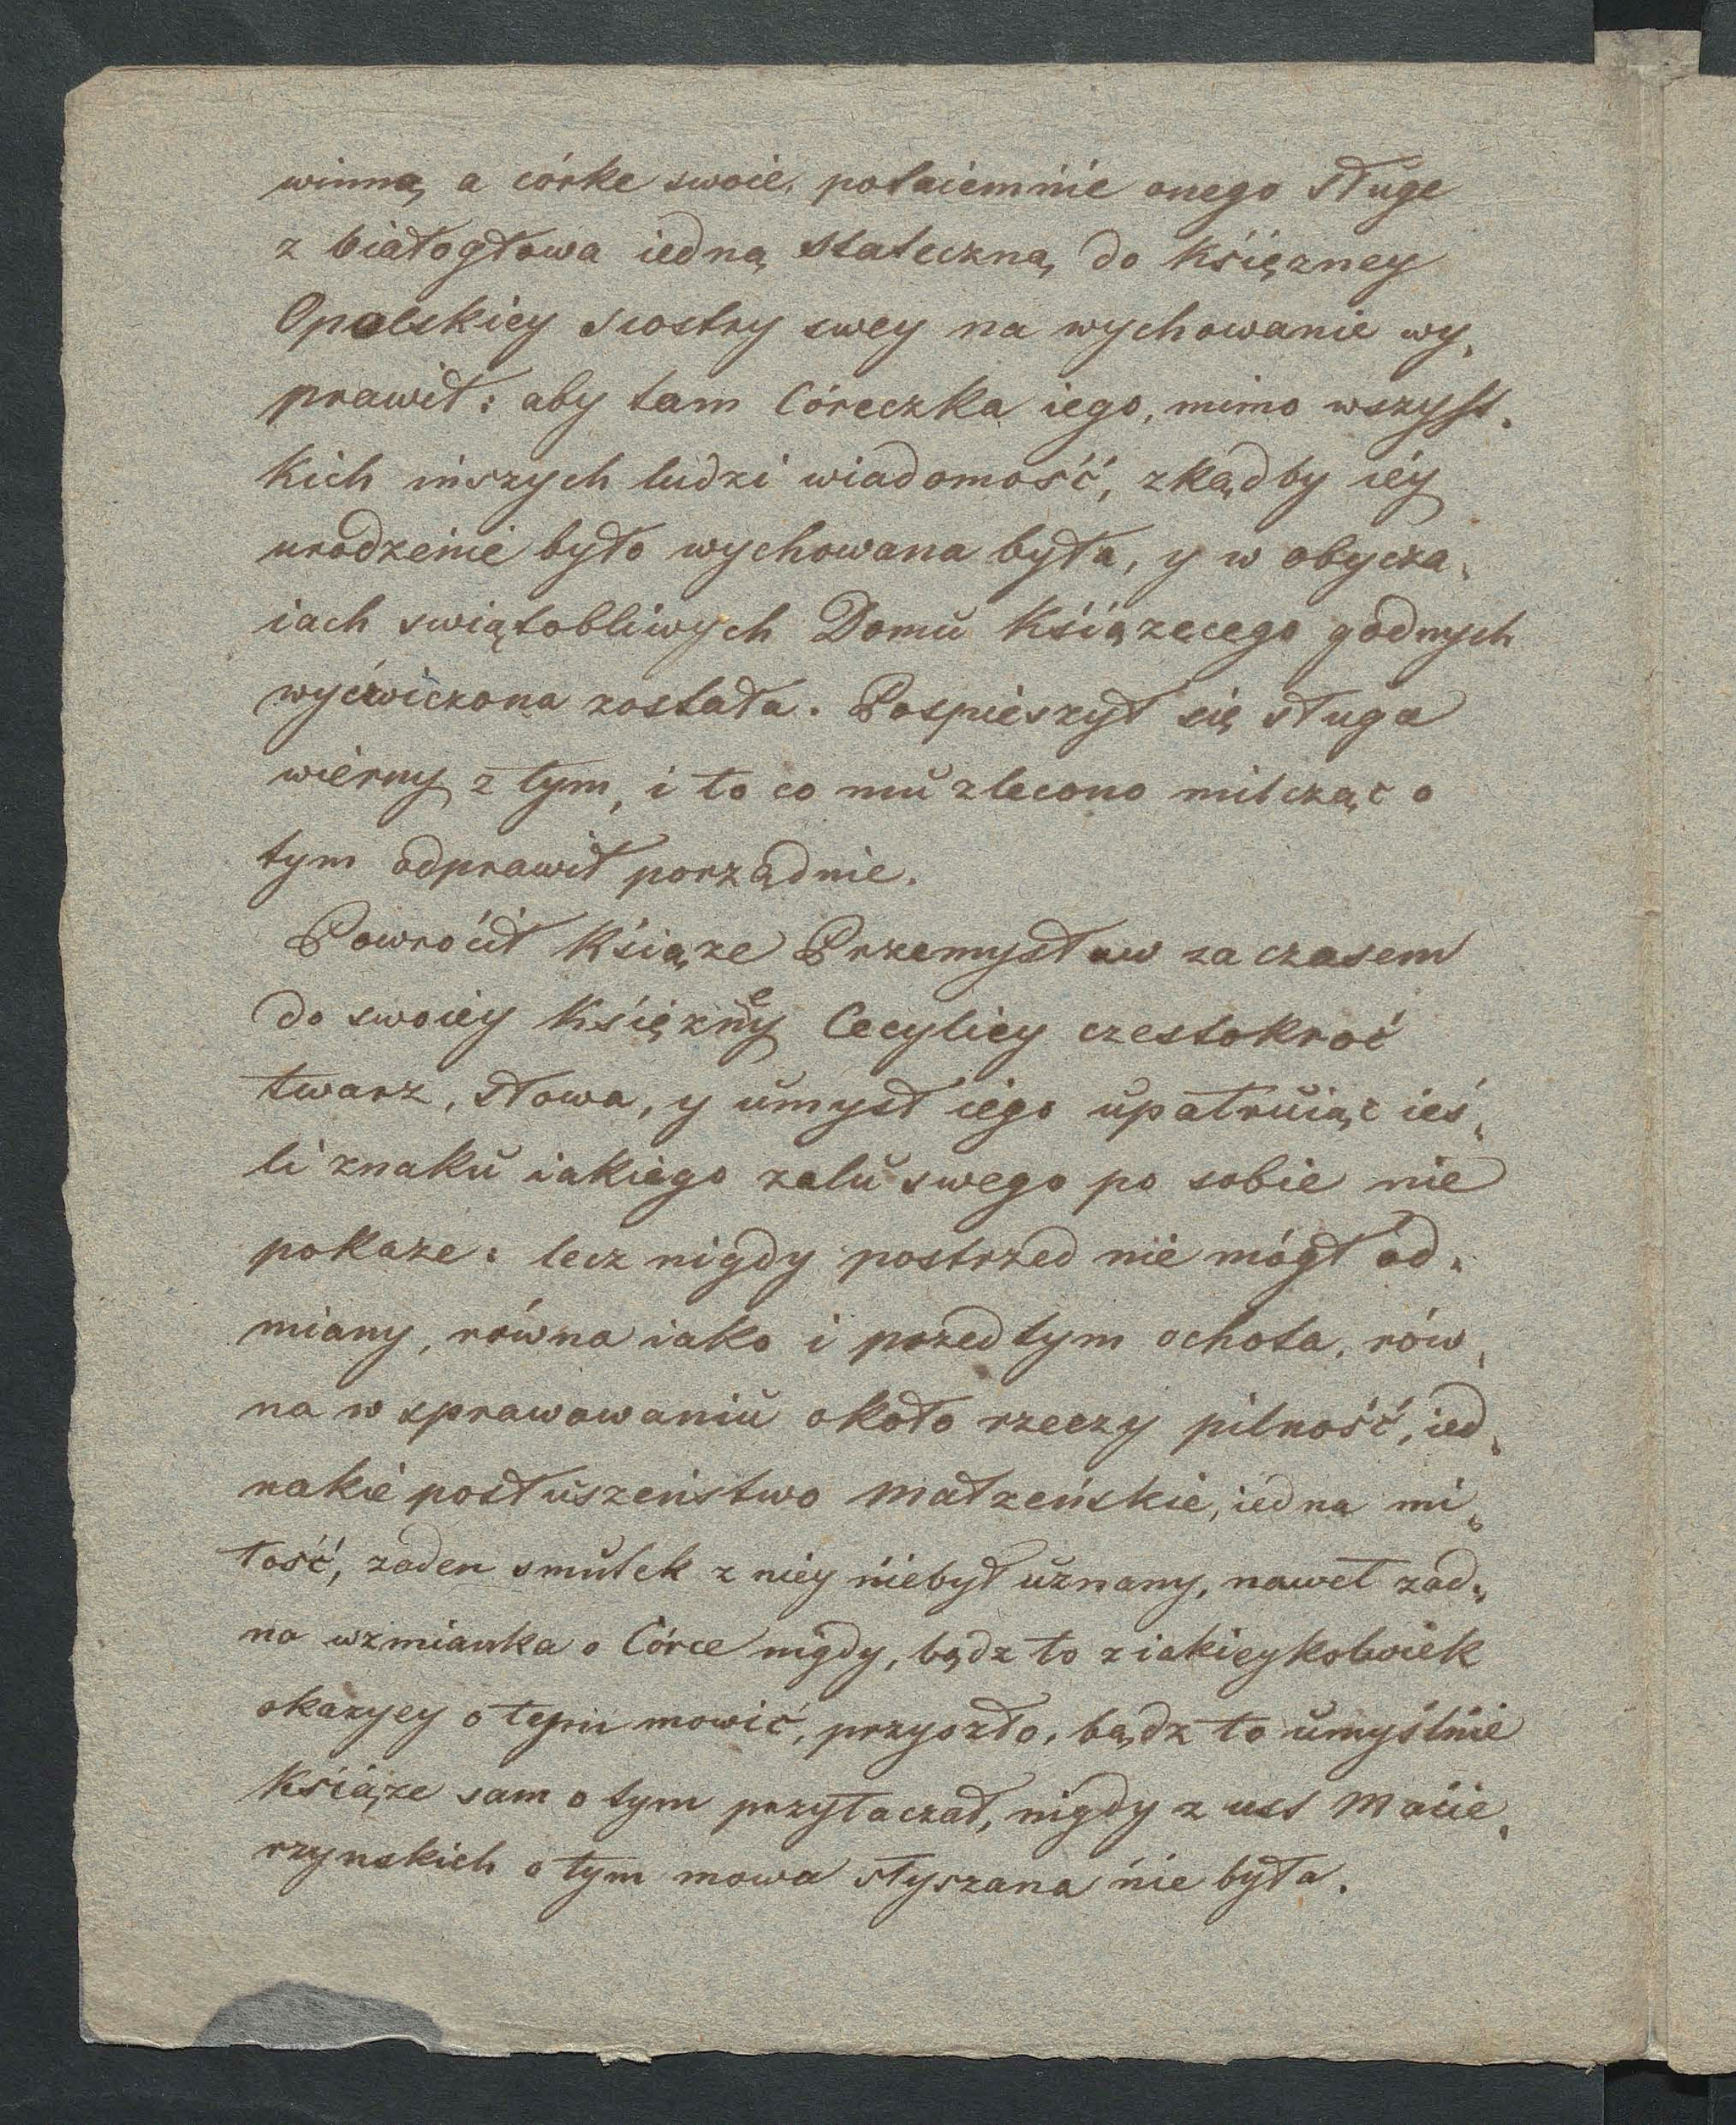 winną, a córke swoie, potaiemnie onego sługe
z białogłowa iedną stateczną, do Księzney
Opolskiey siostry swey na wychowanie wy„
prawił: aby tam Córeczka iego, mimo wszyst„
kich inszych ludzi wiadomość, zkądby iéy
urodzenie było wychowana była, y w obycza„
iach swiątobliwych Domu Książecego godnych
wyćwiczona została. Pospieszył się sługa
wierny z tym, i to co mu zlecono milcząc o
tym odprawił porządnie.
Powrócił Książe Przemysław za czasem
do swoiey Księzney Cecyliey czestokroć
twarz, słowa, y umysł iego upatruiąc ieś„
li znaku iakiego zalu swego po sobie nie
pokaze: lecz nigdy postrzed nie mógł od„
miany, równa iako i przedtym ochota, rów„
na w sprawowaniu około rzeczy pilność, ied„
nakie posłuszeństwo małzeńskie, iedna mi„
łość, zaden smutek z niey niebył uznany, nawet zad„
na wzmianka o Córce nigdy, bądz to z iakieykolwiek
okazyey o tym mowić, przyszło, bądz to umyślnie
Książe sam o tym przytaczał, nigdy z ust Macie„
rzynskich o tym mowa słyszana nie była.